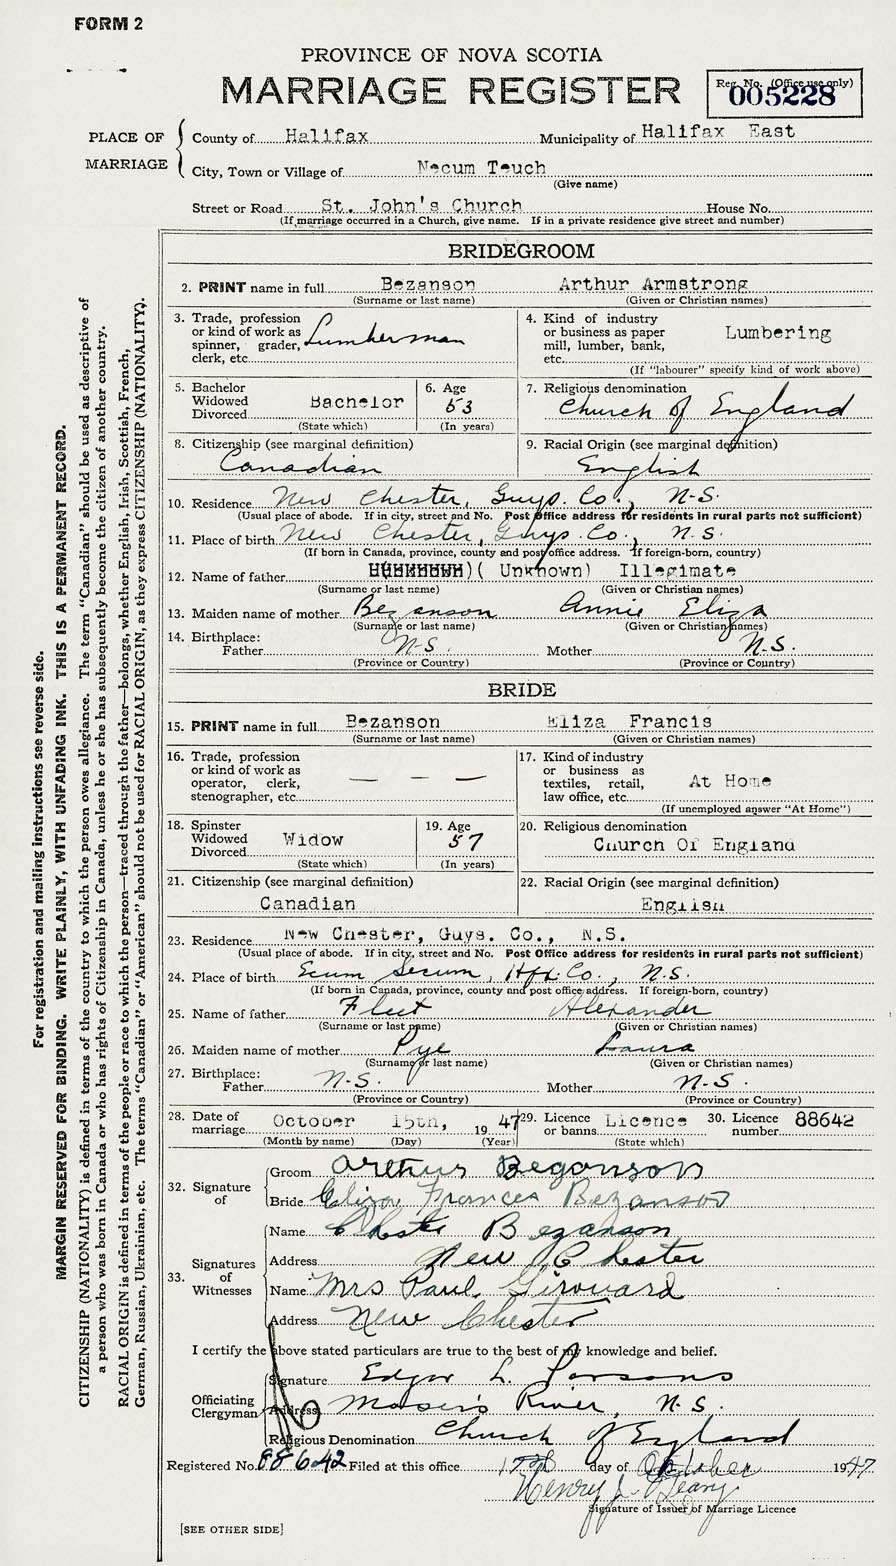 FORM 2
PROVINCE OF NOVA SCOTIA
MARRIAGE REGISTER
Reg. No. (Office use only)
005228
PLACE OF MARRIAGE
County of Halifax Municipality of Halifax East
City, Town or Village of Necum Teuch
(Give name)
Street or Road St. John's Church House No.
(If marriage occurred in a Church, give name. If in a private residence give street and number)
BRIDEGROOM
2. PRINT name in full Bezanson Arthur Armstrong
(Surname or last name) (Given or Christian names)
3. Trade, profession or kind of work as spinner, grader, clerk, etc. Lumberman
4. Kind of industry or business as paper mill, lumber, bank, etc. Lumbering
(If "labourer" specify kind of work above)
5. Bachelor Widowed Divorced Bachelor
(State which)
6. Age 53
(In years)
7. Religious denomination
Church of England
8. Citizenship (see marginal definition)
Canadian
9. Racial Origin (see marginal definition)
English
10. Residence New Chester, Guys. Co., N.S.
(Usual place of abode. If in city, street and No. Post Office address for residents in rural parts not sufficient)
11. Place of birth New Chester, Guys. Co., N.S.
(If born in Canada, province, county and post office address. If foreign-born, country)
12. Name of father ( Unknown) Illegimate
(Surname or last name) (Given or Christian names)
13. Maiden name of mother Bezanson Annie Eliza
(Surname or last name) (Given or Christian names)
14. Birthplace:
Father N.S. Mother N.S.
(Province or Country) (Province or Country)
BRIDE
15. PRINT name in full Bezanson Eliza Francis
(Surname or last name) (Given or Christian names)
16. Trade, profession or kind of work as operator, clerk, stenographer, etc. — — —
17. Kind of industry or business as textiles, retail, law office, etc. At Home
(If unemployed answer "At Home")
18. Spinster Widowed Divorced Widow
(State which)
19. Age 57
(In years)
20. Religious denomination
Church Of England
21. Citizenship (see marginal definition)
Canadian
22. Racial Origin (see marginal definition)
English
23. Residence New Chester, Guys. Co., N.S.
(Usual place of abode. If in city, street and No. Post Office address for residents in rural parts not sufficient)
24. Place of birth Ecum Secum, Hfx. Co., N.S.
(If born in Canada, province, county and post office address. If foreign-born, country)
25. Name of father Fleet Alexander
(Surname or last name) (Given or Christian names)
26. Maiden name of mother Pye Laura
(Surname or last name) (Given or Christian names)
27. Birthplace:
Father N.S. Mother N.S.
(Province or Country) (Province or Country)
28. Date of marriage October 15th, 1947
(Month by name) (Day) (Year)
29. Licence or banns Licence
(State which)
30. Licence number 88642
32. Signature of
Groom Arthur Bezanson
Bride Eliza Frances Bezanson
33. Signatures of Witnesses
Name Bezanson
Address New Chester
Name Mrs Paul Girouard
Address New Chester
I certify the above stated particulars are true to the best of my knowledge and belief.
Officiating Clergyman
Signature Edgar L. Parsons
Address Moser's River, N.S.
Religious Denomination Church of England
Registered No. 88642 Filed at this office 17th day of October 1947
Henry J.
Signature of Issuer of Marriage Licence
[SEE OTHER SIDE]
For registration and mailing instructions see reverse side.
MARGIN RESERVED FOR BINDING. WRITE PLAINLY, WITH UNFADING INK. THIS IS A PERMANENT RECORD.
CITIZENSHIP (NATIONALITY) is defined in terms of the country to which the person owes allegiance. The term "Canadian" should be used as descriptive of
a person who was born in Canada or who has rights of Citizenship in Canada, unless he or she has subsequently become the citizen of another country.
RACIAL ORIGIN is defined in terms of the people or race to which the person—traced through the father—belongs, whether English, Irish, Scottish, French,
German, Russian, Ukrainian, etc. The terms "Canadian" or "American" should not be used for RACIAL ORIGIN, as they express CITIZENSHIP (NATIONALITY).